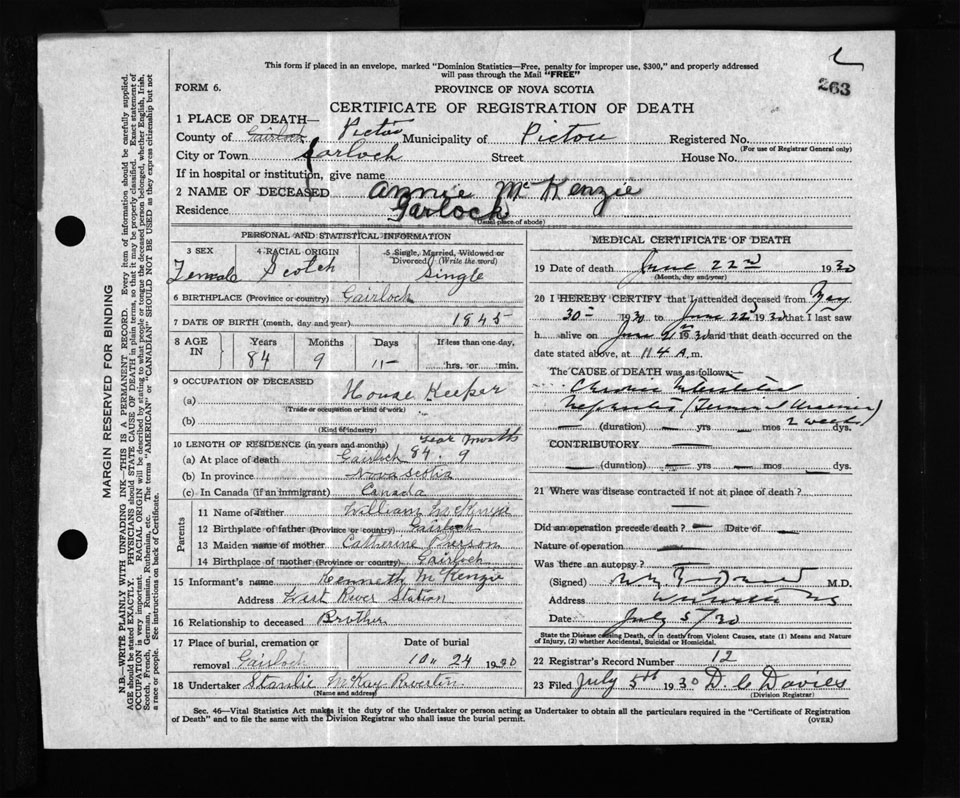 263
This form if placed in an envelope, marked "Dominion Statistics—Free, penalty for improper use, $300," and properly addressed
will pass through the Mail "FREE"
FORM 6.
PROVINCE OF NOVA SCOTIA
CERTIFICATE OF REGISTRATION OF DEATH
1 PLACE OF DEATH—
County of Gairloch Pictou Municipality of Pictou Registered No.
(For use of Registrar General only)
City or Town Garloch Street House No.
If in hospital or institution, give name
2 NAME OF DECEASED Annie McKenzie
Residence Garloch
(Usual place of abode)
PERSONAL AND STATISTICAL INFORMATION
3 SEX 4 RACIAL ORIGIN 5 Single, Married, Widowed or
Divorced (Write the word)
Female Scotch Single
6 BIRTHPLACE (Province or country) Gairloch
7 DATE OF BIRTH (month, day and year) 1845
8 AGE IN Years Months Days If less than one day,
84 9 hrs. or min.
9 OCCUPATION OF DECEASED
(a) House Keeper
(Trade or occupation or kind of work)
(b)
(Kind of industry)
10 LENGTH OF RESIDENCE (in years and months) Year Months
(a) At place of death Gairloch 84. 9
(b) In province Nova Scotia
(c) In Canada (if an immigrant) Canada
Parents
11 Name of father William McKenzie
12 Birthplace of father (Province or country) Gairloch
13 Maiden name of mother Catherine
14 Birthplace of mother (Province or country) Gairloch
15 Informant's name Kenneth McKenzie
Address West River Station
16 Relationship to deceased Brother
17 Place of burial, cremation or Date of burial
removal Gairloch 24 1930
18 Undertaker Stanlie McKay Riverton
(Name and address)
MEDICAL CERTIFICATE OF DEATH
19 Date of death June 22nd 1930
(Month, day and year)
20 I HEREBY CERTIFY that I attended deceased from May
30th 1930 to June 22nd 1930 that I last saw
h alive on June 1930 and that death occurred on the
date stated above, at 11 A.m.
The CAUSE of DEATH was as follows:
Chronic Interstitial
Nephritis (Terminal Uraemia)
(duration) yrs mos 2 weeks dys.
CONTRIBUTORY
(duration) yrs mos dys.
21 Where was disease contracted if not at place of death?
Did an operation precede death? Date of
Nature of operation
Was there an autopsy?
(Signed) M.D.
Address
Date July 5/30
State the Disease causing Death, or in death from Violent Causes, state (1) Means and Nature
of Injury, (2) whether Accidental, Suicidal or Homicidal.
22 Registrar's Record Number 12
23 Filed July 5th 1930 D. C. Davies
(Division Registrar)
Sec. 46—Vital Statistics Act makes it the duty of the Undertaker or person acting as Undertaker to obtain all the particulars required in the "Certificate of Registration
of Death" and to file the same with the Division Registrar who shall issue the burial permit. (OVER)
MARGIN RESERVED FOR BINDING
N.B.—WRITE PLAINLY WITH UNFADING INK—THIS IS A PERMANENT RECORD. Every item of information should be carefully supplied.
AGE should be stated EXACTLY. PHYSICIANS should STATE CAUSE OF DEATH in plain terms, so that it may be properly classified. Exact statement of
OCCUPATION is very important. RACIAL ORIGIN will be described by stating to what people or tongue the deceased person belonged, whether English, Irish,
Scotch, French, German, Russian, Ruthenian, etc. The terms "AMERICAN" or "CANADIAN" SHOULD NOT BE USED as they express citizenship but not
a race or people. See instructions on back of Certificate.